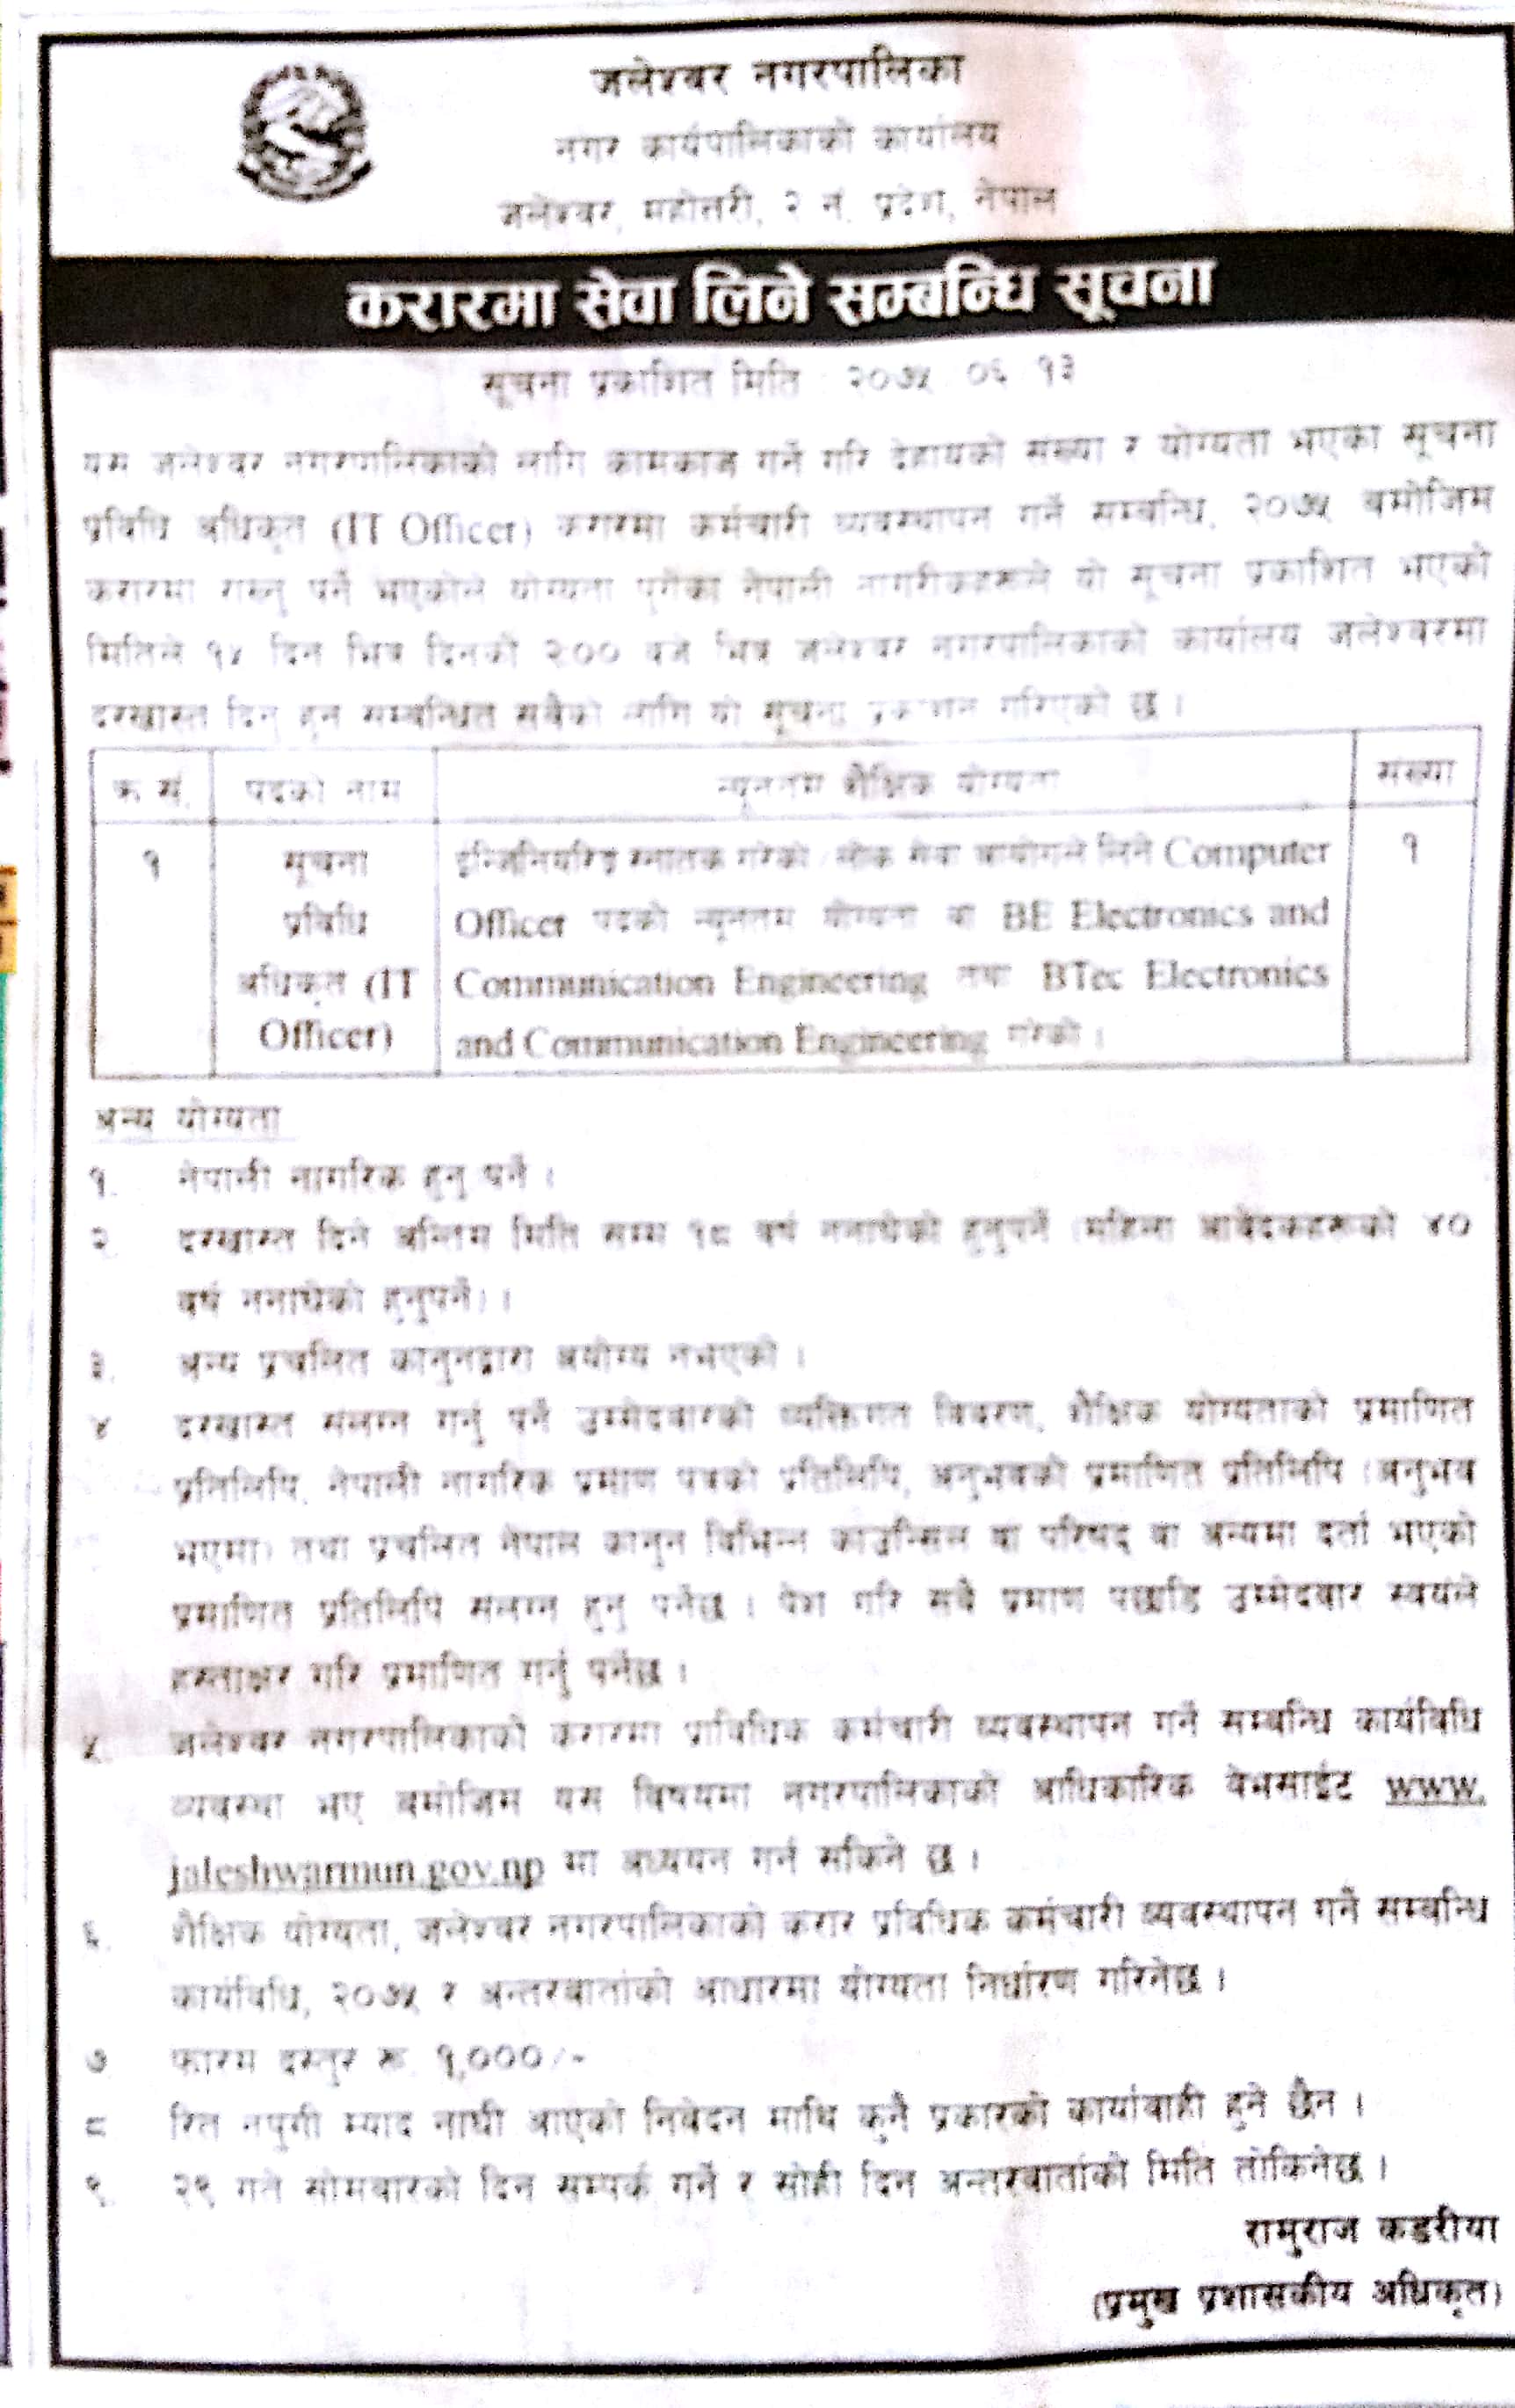 जलेश्वर नगरपालिका
नगर कार्यपालिकाको कार्यालय
जलेश्वर, महोत्तरी, २ नं. प्रदेश, नेपाल
करारमा सेवा लिने सम्बन्धि सूचना
सूचना प्रकाशित मिति : २०७५ ०६ १३
यस जलेश्वर नगरपालिकाको लागि कामकाज गर्ने गरि देहायको संख्या र योग्यता भएका सूचना
प्रविधि अधिकृत (IT Officer) करारमा कर्मचारी व्यवस्थापन गर्ने सम्बन्धि, २०७५ बमोजिम
करारमा राख्नु पर्ने भएकोले योग्यता पुगेका नेपाली नागरीकहरूले यो सूचना प्रकाशित भएको
मितिले १५ दिन भित्र दिनको २:०० बजे भित्र जलेश्वर नगरपालिकाको कार्यालय जलेश्वरमा
दरखास्त दिनु हुन सम्बन्धित सबैको लागि यो सूचना प्रकाशन गरिएको छ ।
क्र.सं. पदको नाम न्यूनतम शैक्षिक योग्यता संख्या
१ सूचना इन्जिनियरिङ स्नातक गरेको लोक सेवा आयोगले लिने Computer १
प्रविधि Officer पदको न्यूनतम योग्यता वा BE Electronics and
अधिकृत (IT Communication Engineering तथा BTec Electronics
Officer) and Communication Engineering गरेको ।
अन्य योग्यता
१. नेपाली नागरिक हुनु पर्ने ।
२. दरखास्त दिने अन्तिम मिति सम्म १८ वर्ष ननाघेको हुनुपर्ने (महिला आवेदकहरूको ४०
वर्ष ननाघेको हुनुपर्ने) ।
३. अन्य प्रचलित कानुनद्वारा अयोग्य नभएको ।
४. दरखास्त संलग्न गर्नु पर्ने उम्मेदवारको व्यक्तिगत विवरण, शैक्षिक योग्यताको प्रमाणित
प्रतिलिपि, नेपाली नागरिक प्रमाण पत्रको प्रतिलिपि, अनुभवको प्रमाणित प्रतिलिपि (अनुभव
भएमा) तथा प्रचलित नेपाल कानुन विभिन्न काउन्सिल वा परिषद वा अन्यमा दर्ता भएको
प्रमाणित प्रतिलिपि संलग्न हुनु पर्नेछ । पेश गरि सबै प्रमाण पछाडि उम्मेदवार स्वयंले
हस्ताक्षर गरि प्रमाणित गर्नु पर्नेछ ।
५. जलेश्वर नगरपालिकाको करारमा प्राविधिक कर्मचारी व्यवस्थापन गर्ने सम्बन्धि कार्यविधि
व्यवस्था भए बमोजिम यस विषयमा नगरपालिकाको आधिकारिक वेभसाईट www.
jaleshwarmun.gov.np मा अध्ययन गर्न सकिने छ ।
६. शैक्षिक योग्यता, जलेश्वर नगरपालिकाको करार प्रविधिक कर्मचारी व्यवस्थापन गर्ने सम्बन्धि
कार्यविधि, २०७५ र अन्तरवार्ताको आधारमा योग्यता निर्धारण गरिनेछ ।
७ फारम दस्तुर रू. १,०००/-
८ रित नपुगी म्याद नाघी आएको निवेदन माथि कुनै प्रकारको कार्यावाही हुने छैन ।
९. २९ गते सोमबारको दिन सम्पर्क गर्ने र सोही दिन अन्तरवार्ताको मिति तोकिनेछ ।
रामुराज कडरीया
(प्रमुख प्रशासकीय अधिकृत)